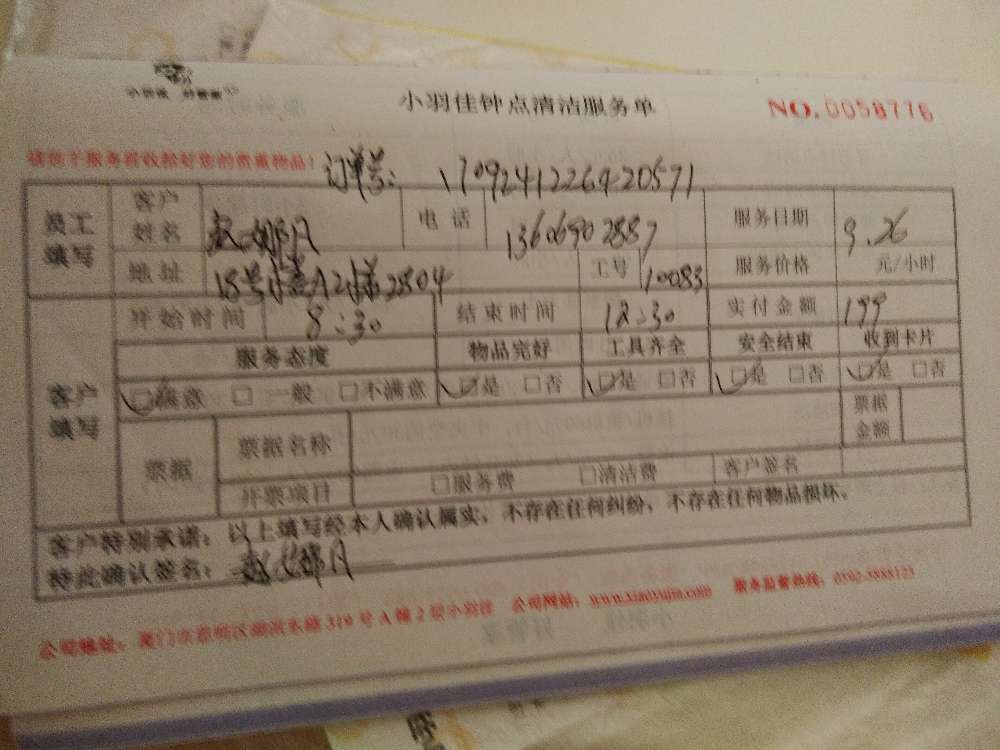 小羽佳 好管家
小羽佳钟点清洁服务单
NO.0058776
请您于服务前收拾好您的贵重物品!
订单号: 1709241226420571
员工填写 客户姓名 赵娜凡 电话 13606902887 服务日期 9.26
地址 18号楼A2梯2804 工号 10083 服务价格 元/小时
客户填写 开始时间 8:30 结束时间 12:30 实付金额 199
服务态度 物品完好 工具齐全 安全结束 收到卡片
☑满意 □一般 □不满意 ☑是 □否 ☑是 □否 ☑是 □否 ☑是 □否
票据 票据名称 票据金额
开票项目 □服务费 □清洁费 客户签名
客户特别承诺:以上填写经本人确认属实,不存在任何纠纷,不存在任何物品损坏。
特此确认签名: 赵娜凡
公司地址:厦门市思明区湖滨东路319号A幢2层小羽佳 公司网站:www.xiaoyujia.com 服务监督热线:0592-5888123